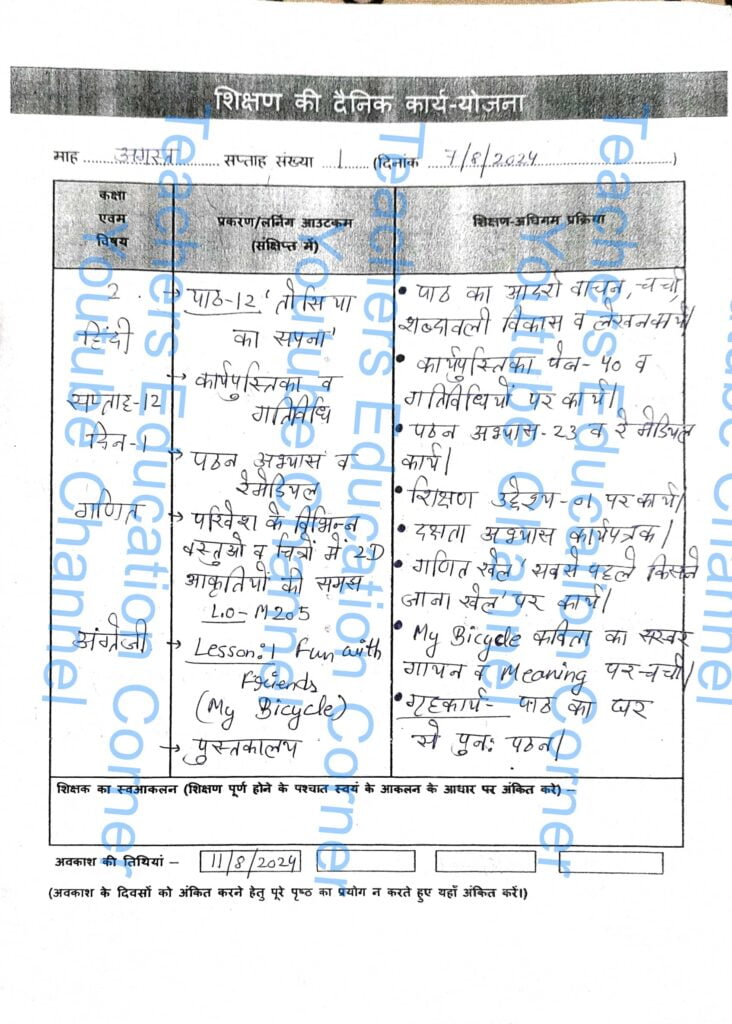 शिक्षण की दैनिक कार्य-योजना
माह ....अगस्त.... सप्ताह संख्या ...1... (दिनांक ...7/8/2024...)
कक्षा
एवम
विषय
प्रकरण/लर्निंग आउटकम
(संक्षिप्त में)
शिक्षण-अधिगम प्रक्रिया
2
हिंदी
सप्ताह-12
दिन-1
गणित
अंग्रेजी
→ पाठ-12 'तोसिया
का सपना'
→ कार्यपुस्तिका व
गतिविधि
→ पठन अभ्यास व
रेमेडियल
→ परिवेश के विभिन्न
वस्तुओ व चित्रों में 2D
आकृतियों की समझ
L.O- M205
→ Lesson:1 Fun with
Friends
(My Bicycle)
→ पुस्तकालय
• पाठ का आदर्श वाचन, चर्चा,
शब्दावली विकास व लेखनकार्य।
• कार्यपुस्तिका पेज- 40 व
गतिविधियों पर कार्य।
• पठन अभ्यास-23 व रेमेडियल
कार्य।
• शिक्षण उद्देश्य-01 पर कार्य।
• दक्षता अभ्यास कार्यपत्रक।
• गणित खेल 'सबसे पहले किसने
जाना खेल' पर कार्य।
• My Bicycle कविता का सस्वर
गायन व Meaning पर-चर्चा।
• गृहकार्य- पाठ का घर
से पुन: पठन।
शिक्षक का स्वआकलन (शिक्षण पूर्ण होने के पश्चात स्वयं के आकलन के आधार पर अंकित करे) –
अवकाश की तिथियां – 11/8/2024
(अवकाश के दिवसों को अंकित करने हेतु पूरे पृष्ठ का प्रयोग न करते हुए यहाँ अंकित करें।)
Teachers Education Corner
Youtube Channel
Teachers Education Corner
Youtube Channel
Teachers Education Corner
Youtube Channel